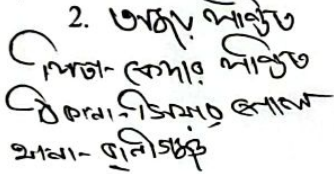 2. অজয় পণ্ডিত
পিতা- কেদার পণ্ডিত
ঠিকানা-
থানা- রানীগঞ্জ